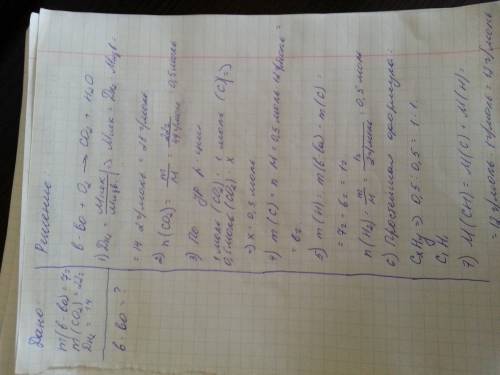 Дано
m(в-ва) = 7г
m(CO2) = 22г
DH2 = 14
в-во = ?
Решение
в-во + O2 → CO2 + H2O
1) DH2 =
= 14 · 2г/моль = 28 г/моль
2) n(CO2) = m/M = 22г/44г/моль = 0,5 моль
3) По ур р-ции
1 моль (CO2) - 1 моль (C) =>
0,5 моль (CO2) - x
=> x = 0,5 моль
4) m(C) = n · M = 0,5 моль · 12г/моль =
= 6г
5) m(H) = m(в-ва) - m(C) =
= 7г - 6г = 1г
n(H2) = m/M = 1г/2г/моль = 0,5 моль
6) Простейшая формула:
CxHy => 0,5 : 0,5 = 1 : 1
C1H1
7) M(CH) = M(C) + M(H) =